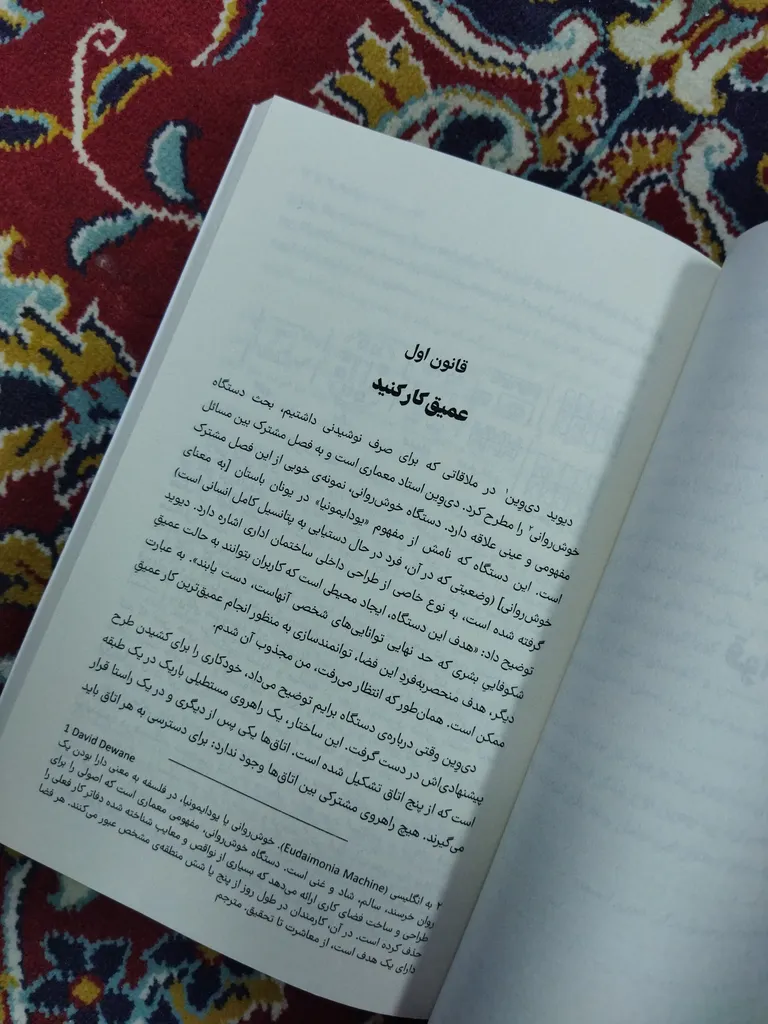 قانون اول
عمیق کار کنید
دیوید دی‌وین۱ در ملاقاتی که برای صرف نوشیدنی داشتیم، بحث دستگاه
خوش‌روانی۲ را مطرح کرد. دی‌وین استاد معماری است و به فصل مشترک بین مسائل
مفهومی و عینی علاقه دارد. دستگاه خوش‌روانی، نمونه‌ی خوبی از این فصل مشترک
است. این دستگاه که نامش از مفهوم «یودایمونیا» در یونان باستان [به معنای
خوش‌روانی] (وضعیتی که در آن، فرد در حال دستیابی به پتانسیل کامل انسانی است)
گرفته شده است، به نوع خاصی از طراحی داخلی ساختمان اداری اشاره دارد. دیوید
توضیح داد: «هدف این دستگاه، ایجاد محیطی است که کاربران بتوانند به حالت عمیقِ
شکوفاییِ بشری که حد نهایی توانایی‌های شخصی آنهاست، دست یابند». به عبارت
دیگر، هدف منحصربه‌فردِ این فضا، توانمندسازی به منظور انجام عمیق‌ترین کار عمیقِ
ممکن است. همان‌طور که انتظار می‌رفت، من مجذوب آن شدم.
دی‌وین وقتی درباره‌ی دستگاه برایم توضیح می‌داد، خودکاری را برای کشیدن طرح
پیشنهادی‌اش در دست گرفت. این ساختار، یک راهروی مستطیلی باریک در یک طبقه
است که از پنج اتاق تشکیل شده است. اتاق‌ها یکی پس از دیگری و در یک راستا قرار
می‌گیرند. هیچ راهروی مشترکی بین اتاق‌ها وجود ندارد: برای دسترسی به هر اتاق باید
1 David Dewane
۲ به انگلیسی (Eudaimonia Machine). خوش‌روانی یا یودایمونیا، در فلسفه به معنی دارا بودن یک
روان خرسند، سالم، شاد و غنی است. دستگاه خوش‌روانی، مفهومی معماری است که اصولی را برای
طراحی و ساخت فضای کاری ارائه می‌دهد که بسیاری از نواقص و معایب شناخته شده دفاتر کار فعلی را
حذف کرده است. در آن، کارمندان در طول روز از پنج یا شش منطقه‌ی مشخص عبور می‌کنند. هر فضا
دارای یک هدف است، از معاشرت تا تحقیق. مترجم